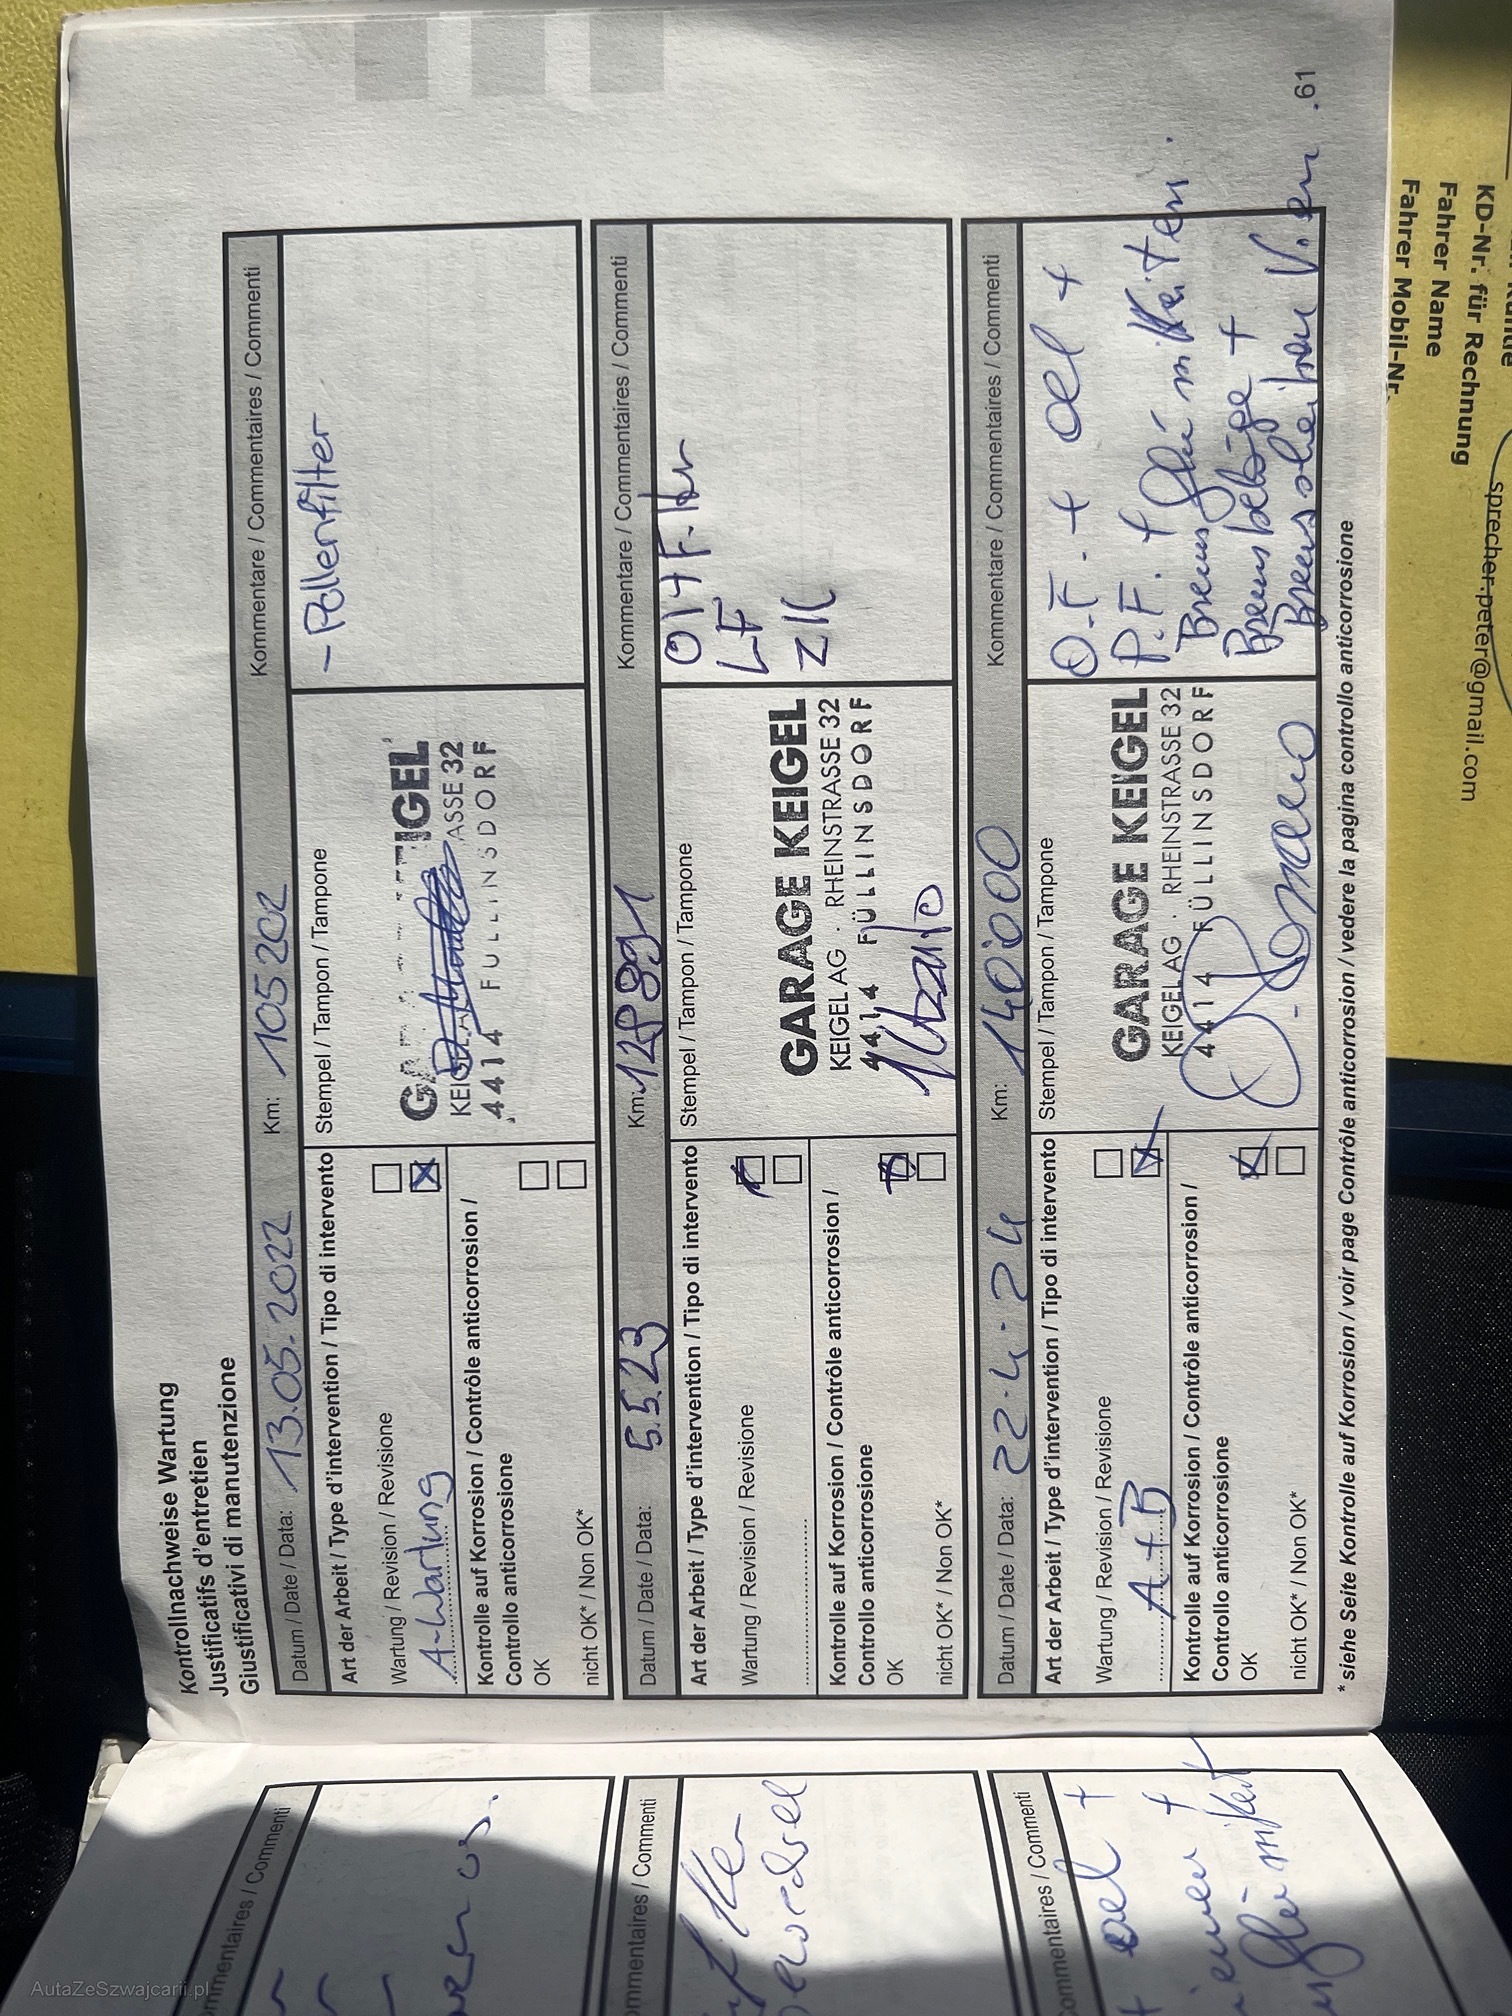 Kontrollnachweise Wartung
Justificatifs d'entretien
Giustificativi di manutenzione
Datum / Date / Data: 13.05.2022 Km: 105202 Kommentare / Commentaires / Commenti
Art der Arbeit / Type d'intervention / Tipo di intervento
Wartung / Revision / Revisione
A-Wartung
Kontrolle auf Korrosion / Contrôle anticorrosion /
Controllo anticorrosione
OK
nicht OK* / Non OK*
Stempel / Tampon / Tampone
4414 FÜLLINSDORF
- Pollenfilter
Datum / Date / Data: 5.5.23 Km: 128991 Kommentare / Commentaires / Commenti
Art der Arbeit / Type d'intervention / Tipo di intervento
Wartung / Revision / Revisione
Kontrolle auf Korrosion / Contrôle anticorrosion /
Controllo anticorrosione
OK
nicht OK* / Non OK*
Stempel / Tampon / Tampone
GARAGE KEIGEL
KEIGEL AG · RHEINSTRASSE 32
4414 FÜLLINSDORF
LF
ZK
Datum / Date / Data: 22.4.24 Km: 140'000 Kommentare / Commentaires / Commenti
Art der Arbeit / Type d'intervention / Tipo di intervento
Wartung / Revision / Revisione
A+B
Kontrolle auf Korrosion / Contrôle anticorrosion /
Controllo anticorrosione
OK
nicht OK* / Non OK*
Stempel / Tampon / Tampone
GARAGE KEIGEL
KEIGEL AG · RHEINSTRASSE 32
4414 FÜLLINSDORF
O.F. + oel +
P.F. +
Bremsflüssigkeiten
Bremsbeläge +
Bremsscheiben V.
* siehe Seite Kontrolle auf Korrosion / voir page Contrôle anticorrosion / vedere la pagina controllo anticorrosione
61
mmentaires / Commenti
ommentaires / Commenti
ommentaires / Commenti
oel +
KD-Nr. für Rechnung
Fahrer Name
Fahrer Mobil-Nr.
sprecher.peter@gmail.com
AutaZeSzwajcarii.pl